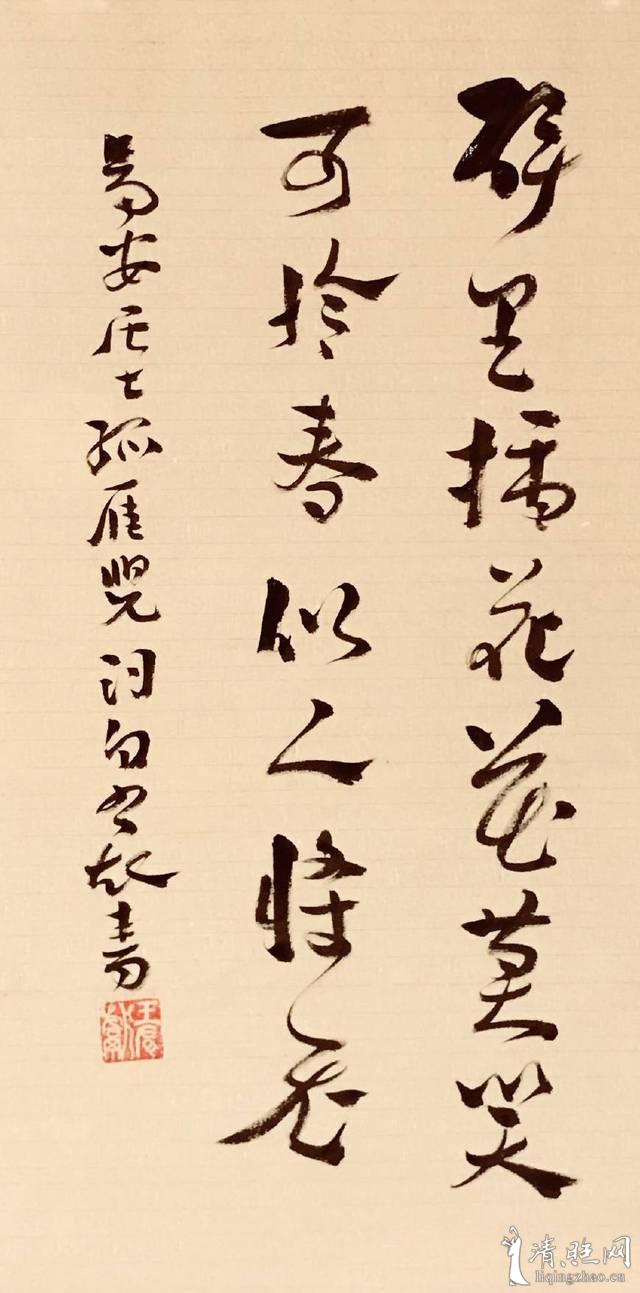 醉里插花花莫笑
可怜春似人将老
易安居士孤雁兒词句 書
清照网
liqingzhao.cn